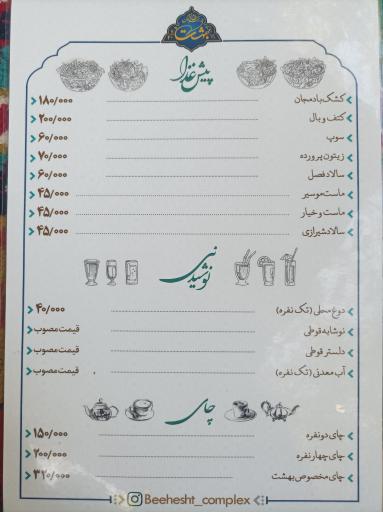 بهشت
پیش غذا
کشک بادمجان ۱۸۰/۰۰۰
کتف و بال ۲۰۰/۰۰۰
سوپ ۶۰/۰۰۰
زیتون پرورده ۷۰/۰۰۰
سالاد فصل ۶۰/۰۰۰
ماست موسیر ۴۵/۰۰۰
ماست و خیار ۴۵/۰۰۰
سالاد شیرازی ۴۵/۰۰۰
نوشیدنی
دوغ محلی (تک نفره) ۴۰/۰۰۰
نوشابه قوطی قیمت مصوب
دلستر قوطی قیمت مصوب
آب معدنی (تک نفره) قیمت مصوب
چای
چای دو نفره ۱۵۰/۰۰۰
چای چهار نفره ۲۰۰/۰۰۰
چای مخصوص بهشت ۳۲۰/۰۰۰
Beehesht_complex